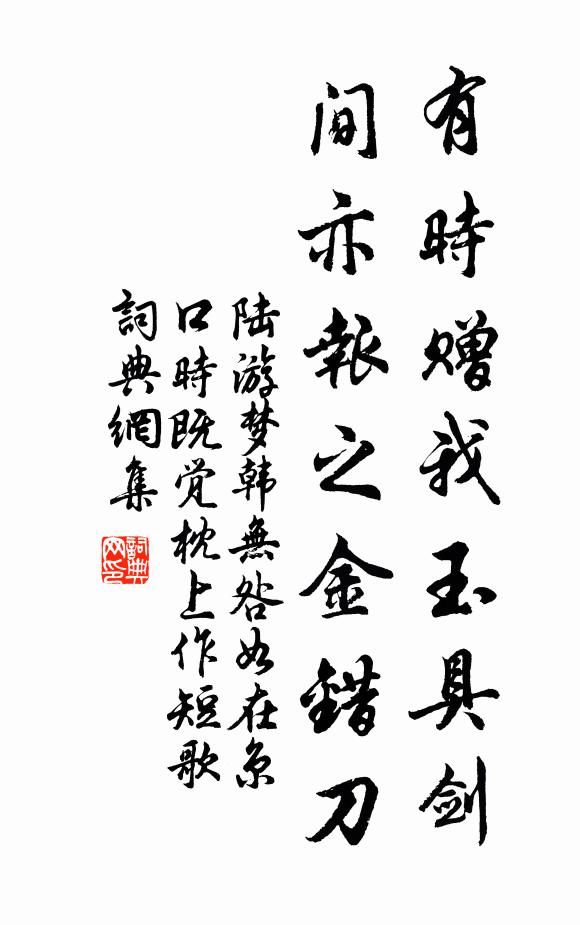 有時赠我玉具剑
间亦報之金錯刀
陆游梦韩無咎如在京
口時既觉枕上作短歌
詞典網集
詞典
网印